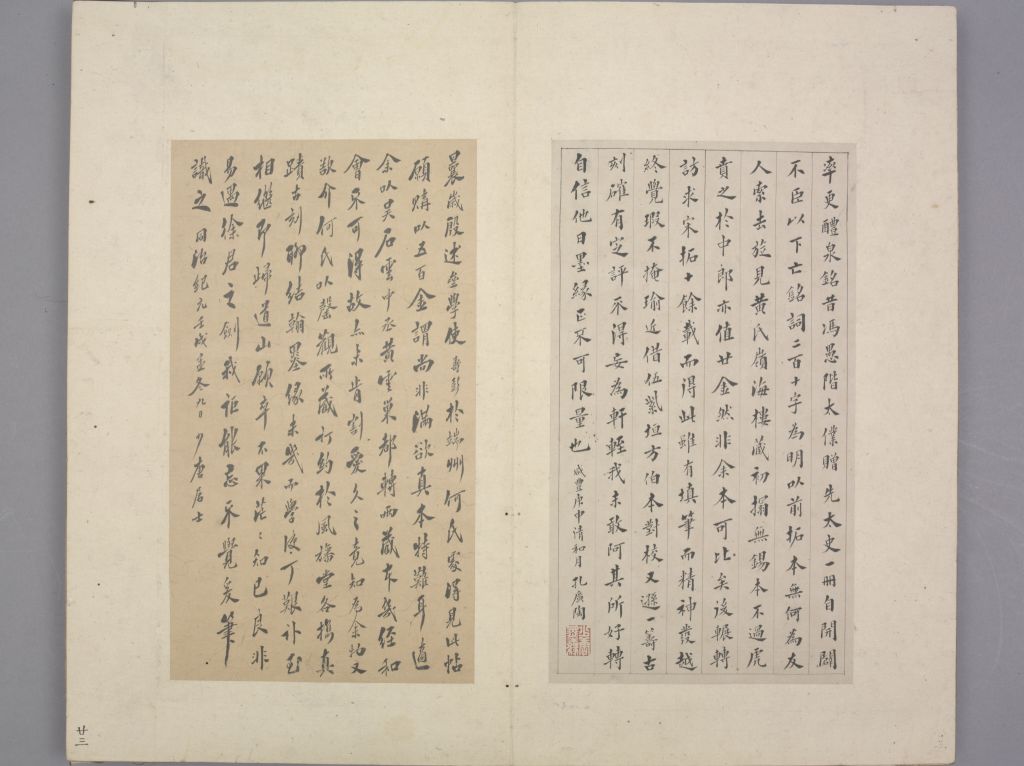 率更醴泉銘昔馮愚階太僕贈先太史一冊自開闢
不臣以下亡銘詞二百十字為明以前拓本無何為友
人索去旋見黃氏嶺海樓藏初搨無錫本不過虎
賁之於中郎亦值廿金然非余本可比矣後輾轉
訪求宋拓十餘載而得此雖有填筆而精神發越
終覺瑕不掩瑜近借伍紫垣方伯本對校又遜一籌古
刻確有定評不得妄為軒輊我未敢阿其所好轉
自信他日墨緣正不可限量也 咸豐庚申清和月孔廣陶
曩歲殷述垒學使壽彭於端州何氏處得見此帖
願購以五百金謂尚非滿欲真本特難耳適
余以吳石雲中丞黃雲巢都轉兩藏本幾經和
會不可得故亦未肯割愛久之竟知為余物又
欵介何氏以罄觀所藏訂約於風旛堂各攜真
蹟古刻聊結翰墨緣未幾而學使丁艱訃至
相繼即歸道山願卒不果茫茫知己良非
易遇徐君之劍我詎能忘不覺爰筆
識之 同治紀元壬戌孟冬九日 少唐居士
廿三